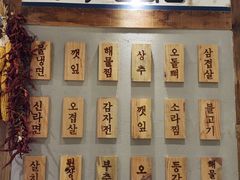 물냉면
깻잎
해물찜
상추
오돌뼈
삼겹살
신라면
오겹살
감자전
깻잎
소라찜
불고기
살치
부추
오
등갈
해물